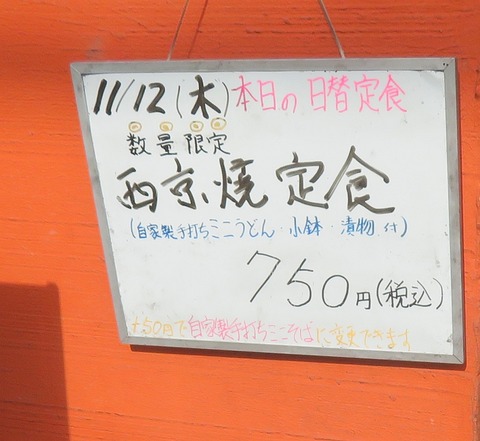 11/12(木)本日の日替定食
数量限定
西京焼定食
(自家製手打ちミニうどん・小鉢・漬物付)
750円(税込)
+50円で自家製手打ちミニそばに変更できます